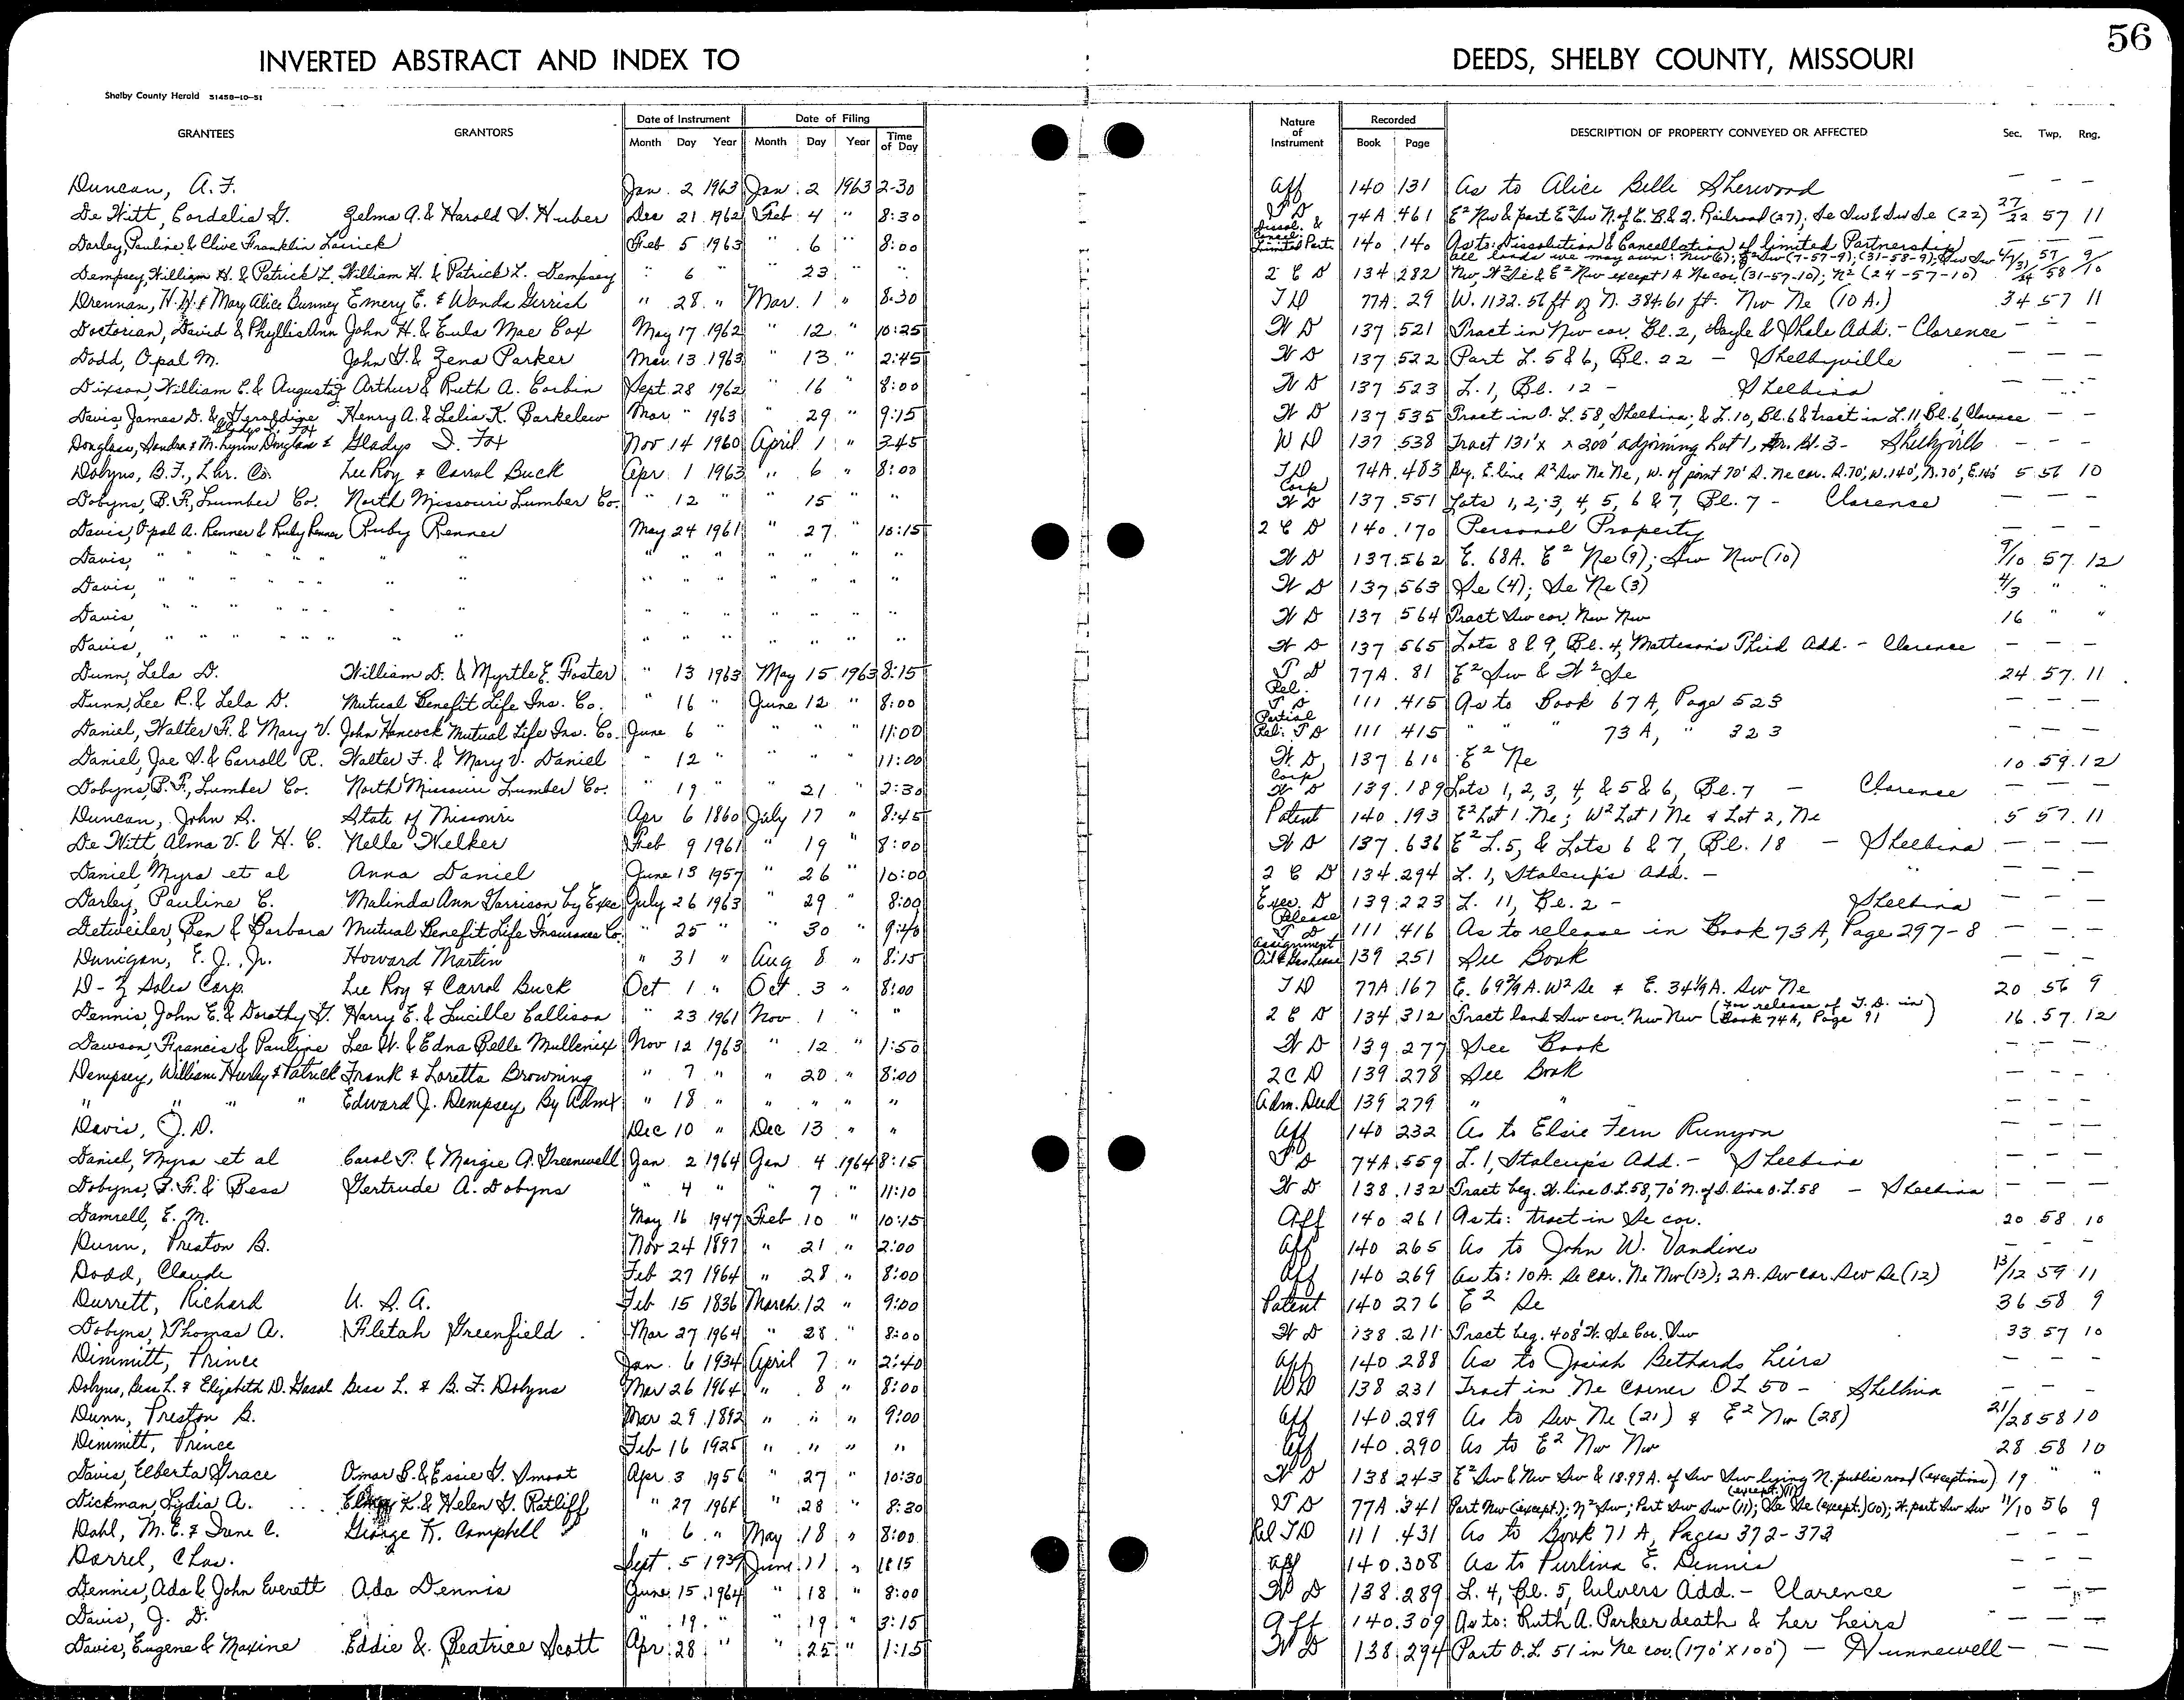 56
INVERTED ABSTRACT AND INDEX TO DEEDS, SHELBY COUNTY, MISSOURI
Shelby County Herald 51458-10-51
GRANTEES GRANTORS Date of Instrument Date of Filing Nature of Instrument Recorded DESCRIPTION OF PROPERTY CONVEYED OR AFFECTED Sec. Twp. Rng.
Month Day Year Month Day Year Time of Day Book Page
Duncan, A.F. Jan. 2 1963 Jan. 2 1963 2-30 Aff 140 131 As to Alice Belle Sherwood — — —
De Witt, Cordelia G. Zelma A. & Harold S. Huber Dec 21 1962 Feb 4 " 8:30 T D 74A 461 E² Nw & part E² Sw N. of C. B. & Q. Railroad (27); Se Sw & Sw Se (22) 27/22 57 11
Darley, Pauline & Clive Franklin Feb 5 1963 " 6 " 8:00 Dissol. & Cancel. Limited Part. 140 140 As to: Dissolution & Cancellation of limited Partnership — — —
Dempsey, William H. & Patrick L. William H. & Patrick L. Dempsey " 6 " 23 " " 2 C D 134 282 all lands we may own: Nw (6); E² Sw (7-57-9); (31-58-9); Nw, W² Se & E² Nw except 1 A Ne cor (31-57-10); N² (24-57-10)
Drennan, H.H. & Mary Alice Bunney Emery E. & Wanda Gerrish " 28 " Mar. 1 " 8:30 T D 77A 29 W. 1132.56 ft of N. 384.61 ft. Nw Ne (10 A.) 34 57 11
Doctorian, David & Phyllis Ann John H. & Eula Mae Cox May 17 1962 " 12 " 10:25 W D 137 521 Tract in Nw cor. Bl. 2, Gayle & Shale Add. - Clarence — — —
Dodd, Opal M. John G. & Zena Parker Mar. 13 1963 " 13 " 2:45 W D 137 522 Part L. 5 & 6, Bl. 22 — Shelbyville — — —
Dixson, William C. & Augusta Arthur & Ruth A. Corbin Sept. 28 1962 " 16 " 8:00 W D 137 523 L. 1, Bl. 12 - Shelbina — — —
Davis, James D. & Geraldine Henry A. & Lelia K. Barkelew Mar " 1963 " 29 " 9:15 W D 137 535 Tract in O. L. 58, Shelbina; & L. 10, Bl. 6 & tract in L. 11 Bl. 6, Clarence — —
Douglass, Sandra & M. Lynn Douglass & Gladys I. Fox Gladys I. Fox Nov 14 1960 April 1 " 3:45 W D 137 538 Tract 131' x 200' adjoining Lot 1, Bl. 3 - Shelbyville — — —
Dobyns, B.F., Lbr. Co. Lee Roy & Carrol Buck Apr 1 1963 " 6 " 8:00 T D 74A 483 Beg. E. line S² Sw Ne Ne, W. of point 70' S. Ne cor. S. 70', W. 140', N. 70', E. 140' 5 56 10
Dobyns, B. F., Lumber Co. North Missouri Lumber Co. " 12 " " 15 " " Corp W D 137 551 Lots 1, 2, 3, 4, 5, 6 & 7, Bl. 7 - Clarence — — —
Davis, Opal A. Renner & Ruby Renner Ruby Renner May 24 1961 " 27 " 10:15 2 C D 140 170 Personal Property — — —
Davis, " " " " " " " " " " " " " " W D 137 562 E. 68A. E² Ne (9); Sw Nw (10) 9/10 57 12
Davis, " " " " " " " " " " " " " " W D 137 563 Se (4); Se Ne (3) 4/3 " "
Davis, " " " " " " " " " " " " " " W D 137 564 Tract Sw cor. Nw Nw 16 " "
Davis, " " " " " " " " " " " " " " W D 137 565 Lots 8 & 9, Bl. 4, Matteson's Third Add. - Clarence — — —
Dunn, Lela D. William D. & Myrtle E. Foster " 13 1963 May 15 1963 8:15 T D 77A 81 E² Sw & W² Se 24 57 11
Dunn, Lee R. & Lela D. Mutual Benefit Life Ins. Co. " 16 " June 12 " 8:00 Rel. T D 111 415 As to Book 67 A, Page 523 — — —
Daniel, Walter F. & Mary V. John Hancock Mutual Life Ins. Co. June 6 " " " " 11:00 Partial Rel. T D 111 415 " " " 73 A, " 323 — — —
Daniel, Joe S. & Carroll R. Walter F. & Mary V. Daniel " 12 " " " " 11:00 W. D. 137 610 E² Ne 10 59 12
Dobyns, B. F., Lumber Co. North Missouri Lumber Co. " 19 " " 21 " 2:30 Corp W D 139 189 Lots 1, 2, 3, 4, & 5 & 6, Bl. 7 — Clarence — — —
Duncan, John S. State of Missouri Apr 6 1860 July 17 " 8:45 Patent 140 193 E² Lot 1 Ne; W² Lot 1 Ne & Lot 2, Ne 5 57 11
De Witt, Alma V. & H. C. Nelle Welker Feb 9 1961 " 19 " 8:00 W D 137 636 E² L. 5, & Lots 6 & 7, Bl. 18 — Shelbina — — —
Daniel, Myra et al Anna Daniel June 13 1957 " 26 " 10:00 2 C D 134 294 L. 1, Stalcup's Add. - " — —
Darley, Pauline C. Malinda Ann Garrison, by Exec July 26 1963 " 29 " 8:00 Exec. D 139 223 L. 11, Bl. 2 - Shelbina — — —
Detweiler, Ben & Barbara Mutual Benefit Life Insurance Co. " 25 " " 30 " 9:40 Release T D 111 416 As to release in Book 73 A, Page 297-8 — — —
Dunigan, E. J., Jr. Howard Martin " 31 " Aug 8 " 8:15 Assignment Oil & Gas Lease 139 251 See Book — — —
D-Z Sales Corp. Lee Roy & Carrol Buck Oct 1 " Oct. 3 " 8:00 T D 77A 167 E. 69 7/9 A. W² Se & E. 34 1/9 A. Sw Ne 20 56 9
Dennis, John E. & Dorothy G. Harry E. & Lucille Collison " 23 1961 Nov. 1 " " 2 C D 134 312 Tract land Sw cor. Nw Nw (For release of T. D. in Book 74A, Page 91) 16 57 12
Dawson, Francis & Pauline Lee W. & Edna Belle Mullenix Nov 12 1963 " 12 " 1:50 W D 139 277 See Book — — —
Dempsey, William Hurley & Patrick Frank & Loretta Browning " 7 " " 20 " 8:00 2 C D 139 278 See Book — — —
" " " " Edward J. Dempsey, By Admx " 18 " " " " " Adm. Deed 139 279 " " — — —
Davis, J. D. Dec 10 " Dec 13 " " Aff 140 232 As to Elsie Fern Runyon — — —
Daniel, Myra et al Carol P. & Margie A. Greenwell Jan 2 1964 Jan 4 1964 8:15 T D 74A 559 L. 1, Stalcup's Add. - Shelbina — — —
Dobyns, B. F. & Bess Gertrude A. Dobyns " 4 " " 7 " 11:10 W D 138 132 Tract beg. W. line O. L. 58, 70' N. of S. line O. L. 58 — Shelbina — — —
Damrell, E. M. May 16 1947 Feb 10 " 10:15 Aff 140 261 As to: tract in Se cor. 20 58 10
Dunn, Preston B. Nov 24 1897 " 21 " 2:00 Aff 140 265 As to John W. Vandiver — — —
Dodd, Claude Feb 27 1964 " 28 " 8:00 Aff 140 269 As to: 10A. Se cor. Ne Nw (13); 2A. Sw cor. Sw Se (12) 13/12 59 11
Durrett, Richard U. S. A. Feb 15 1836 March 12 " 9:00 Patent 140 276 E² Se 36 58 9
Dobyns, Thomas A. Filetah Greenfield Mar 27 1964 " 28 " 8:00 W D 138 211 Tract beg. 408' W. Se Cor. Sw 33 57 10
Dimmitt, Prince Jan. 6 1934 April 7 " 2:40 Aff 140 288 As to Josiah Bethards heirs — — —
Dobyns, Bess L. & Elizabeth D. Gasal Bess L. & B. F. Dobyns Mar 26 1964 " 8 " 8:00 WD 138 231 Tract in Ne Corner OL 50 - Shelbina — — —
Dunn, Preston B. Mar 29 1892 " " " 9:00 Aff 140 289 As to Sw Ne (21) & E² Nw (28) 21/28 58 10
Dimmitt, Prince Feb 16 1925 " " " " Aff 140 290 As to E² Nw Nw 28 58 10
Davis, Elberta Grace Omar B. & Essie G. Smoot Apr 3 1956 " 27 " 10:30 W D 138 243 E² Sw & Nw Sw & 18.99 A. of Sw Sw lying N. public road (exceptions) 19 " "
Dickman, Lydia A. K. & Helen G. Ratliff " 27 1964 " 28 " 8:30 T D 77A 341 Part Nw (except.); N² Sw; Part Sw Sw (11); Se Se (except.) (10); W. part Sw Sw (except) (11) 11/10 56 9
Dahl, M. E. & Irene C. George K. Campbell " 6 " May 18 " 8:00 Rel T D 111 431 As to Book 71 A, Pages 372-373 — — —
Darrel, Chas. Sept. 5 1939 June 11 " Aff 140 308 As to Purlina E. Dennis — — —
Dennis, Ada & John Everett Ada Dennis June 15 1964 " 18 " 8:00 W D 138 289 L. 4, Bl. 5, Culvers Add. - Clarence — — —
Davis, J. D. " 19 " " 19 " 3:15 Aff 140 309 As to: Ruth A. Parker death & her heirs — — —
Davis, Eugene & Maxine Eddie & Beatrice Scott Apr 28 " " 25 " 1:15 W D 138 294 Part O. L. 51 in Ne cor. (170' x 100') — Hunnewell — — —